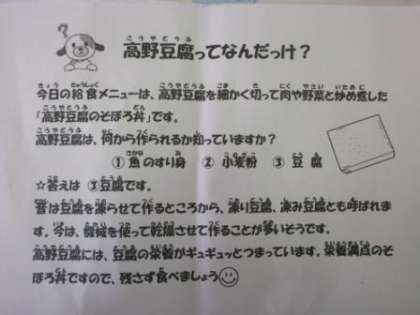 高野豆腐ってなんだっけ？
今日の給食メニューは、高野豆腐を細かく切って肉や野菜と炒め煮した
「高野豆腐のそぼろ丼」です。
高野豆腐は、何から作られるか知っていますか？
① 魚のすり身　② 小麦粉　③ 豆 腐
☆答えは ③豆腐です。
昔は豆腐を凍らせて作るところから、凍り豆腐、凍み豆腐とも呼ばれま
す。今は、機械を使って乾燥させて作ることが多いそうです。
高野豆腐には、豆腐の栄養がギュギュッとつまっています。栄養満点のそ
ぼろ丼ですので、残さず食べましょう